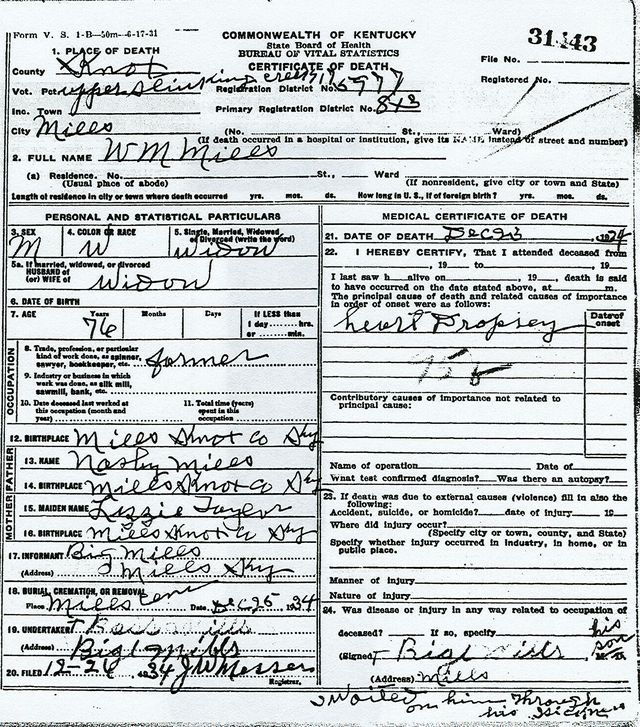 Form V. S. 1-B—50m—6-17-31
COMMONWEALTH OF KENTUCKY
State Board of Health
BUREAU OF VITAL STATISTICS
CERTIFICATE OF DEATH
File No. 31443
Registered No.
1. PLACE OF DEATH
County Knot
Vot. Pct. upper Stinking creek
Registration District No.
Inc. Town
Primary Registration District No. 843
City Mills (No. St., Ward)
(If death occurred in a hospital or institution, give its NAME instead of street and number)
2. FULL NAME WM Mills
(a) Residence. No. St., Ward
(Usual place of abode) (If nonresident, give city or town and State)
Length of residence in city or town where death occurred yrs. mos. ds. How long in U. S., if of foreign birth? yrs. mos. ds.
PERSONAL AND STATISTICAL PARTICULARS
3. SEX M
4. COLOR OR RACE W
5. Single, Married, Widowed or Divorced (write the word) Widow
5a. If married, widowed, or divorced
HUSBAND of
(or) WIFE of Widow
6. DATE OF BIRTH
7. AGE Years 76 Months Days If LESS than
1 day hrs.
or min.
OCCUPATION
8. Trade, profession, or particular
kind of work done, as spinner,
sawyer, bookkeeper, etc. farmer
9. Industry or business in which
work was done, as silk mill,
sawmill, bank, etc.
10. Date deceased last worked at
this occupation (month and
year)
11. Total time (years)
spent in this
occupation
12. BIRTHPLACE Mills Knot Co Ky
FATHER
13. NAME Nashy Mills
14. BIRTHPLACE Mills Knot Co Ky
MOTHER
15. MAIDEN NAME Lizzie Taylor
16. BIRTHPLACE Mills Knot Co Ky
17. INFORMANT Big Mills
(Address) Mills Ky
18. BURIAL, CREMATION, OR REMOVAL
Place Mills Cem Date Dec 25 1934
19. UNDERTAKER
(Address) Mills
20. FILED 12-26 1934 J W Messer
Registrar.
MEDICAL CERTIFICATE OF DEATH
21. DATE OF DEATH Dec 23
22. I HEREBY CERTIFY, That I attended deceased from
, 19 to , 19
I last saw h alive on , 19 , death is said
to have occurred on the date stated above, at m.
The principal cause of death and related causes of importance
in order of onset were as follows:
Date of
onset
heart Dropsey
Contributory causes of importance not related to
principal cause:
Name of operation Date of
What test confirmed diagnosis? Was there an autopsy?
23. If death was due to external causes (violence) fill in also the
following:
Accident, suicide, or homicide? date of injury 19
Where did injury occur?
(Specify city or town, county, and State)
Specify whether injury occurred in industry, in home, or in
public place.
Manner of injury
Nature of injury
24. Was disease or injury in any way related to occupation of
deceased? If so, specify
(Signed) Mills his son
(Address) Mills
I Waited on him through his